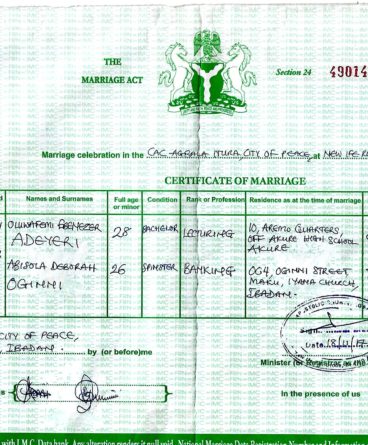 THE
MARRIAGE ACT
Section 24
49014
Marriage celebration in the CAC AGBALA ITURA, CITY OF PEACE, at NEW IFE R
CERTIFICATE OF MARRIAGE
Names and Surnames
Full age or minor
Condition
Rank or Profession
Residence as at the time of marriage
OLUWAFEMI EBENEZER
ADEYERI
28
BACHELOR
LECTURING
10, AREMO QUARTERS,
OFF AKURE HIGH SCHOOL
AKURE
ABISOLA DEBORAH
OGINNI
26
SPINSTER
BANKING
OG4, OGINNI STREET
IYANA CHURCH,
IBADAN.
CITY OF PEACE,
IBADAN. by (or before)me
Date
Minister (or Registrar) as the
In the presence of us
with I.M.C. Data bank. Any alteration renders it null &void. National Marriage Data Registration Number and Information